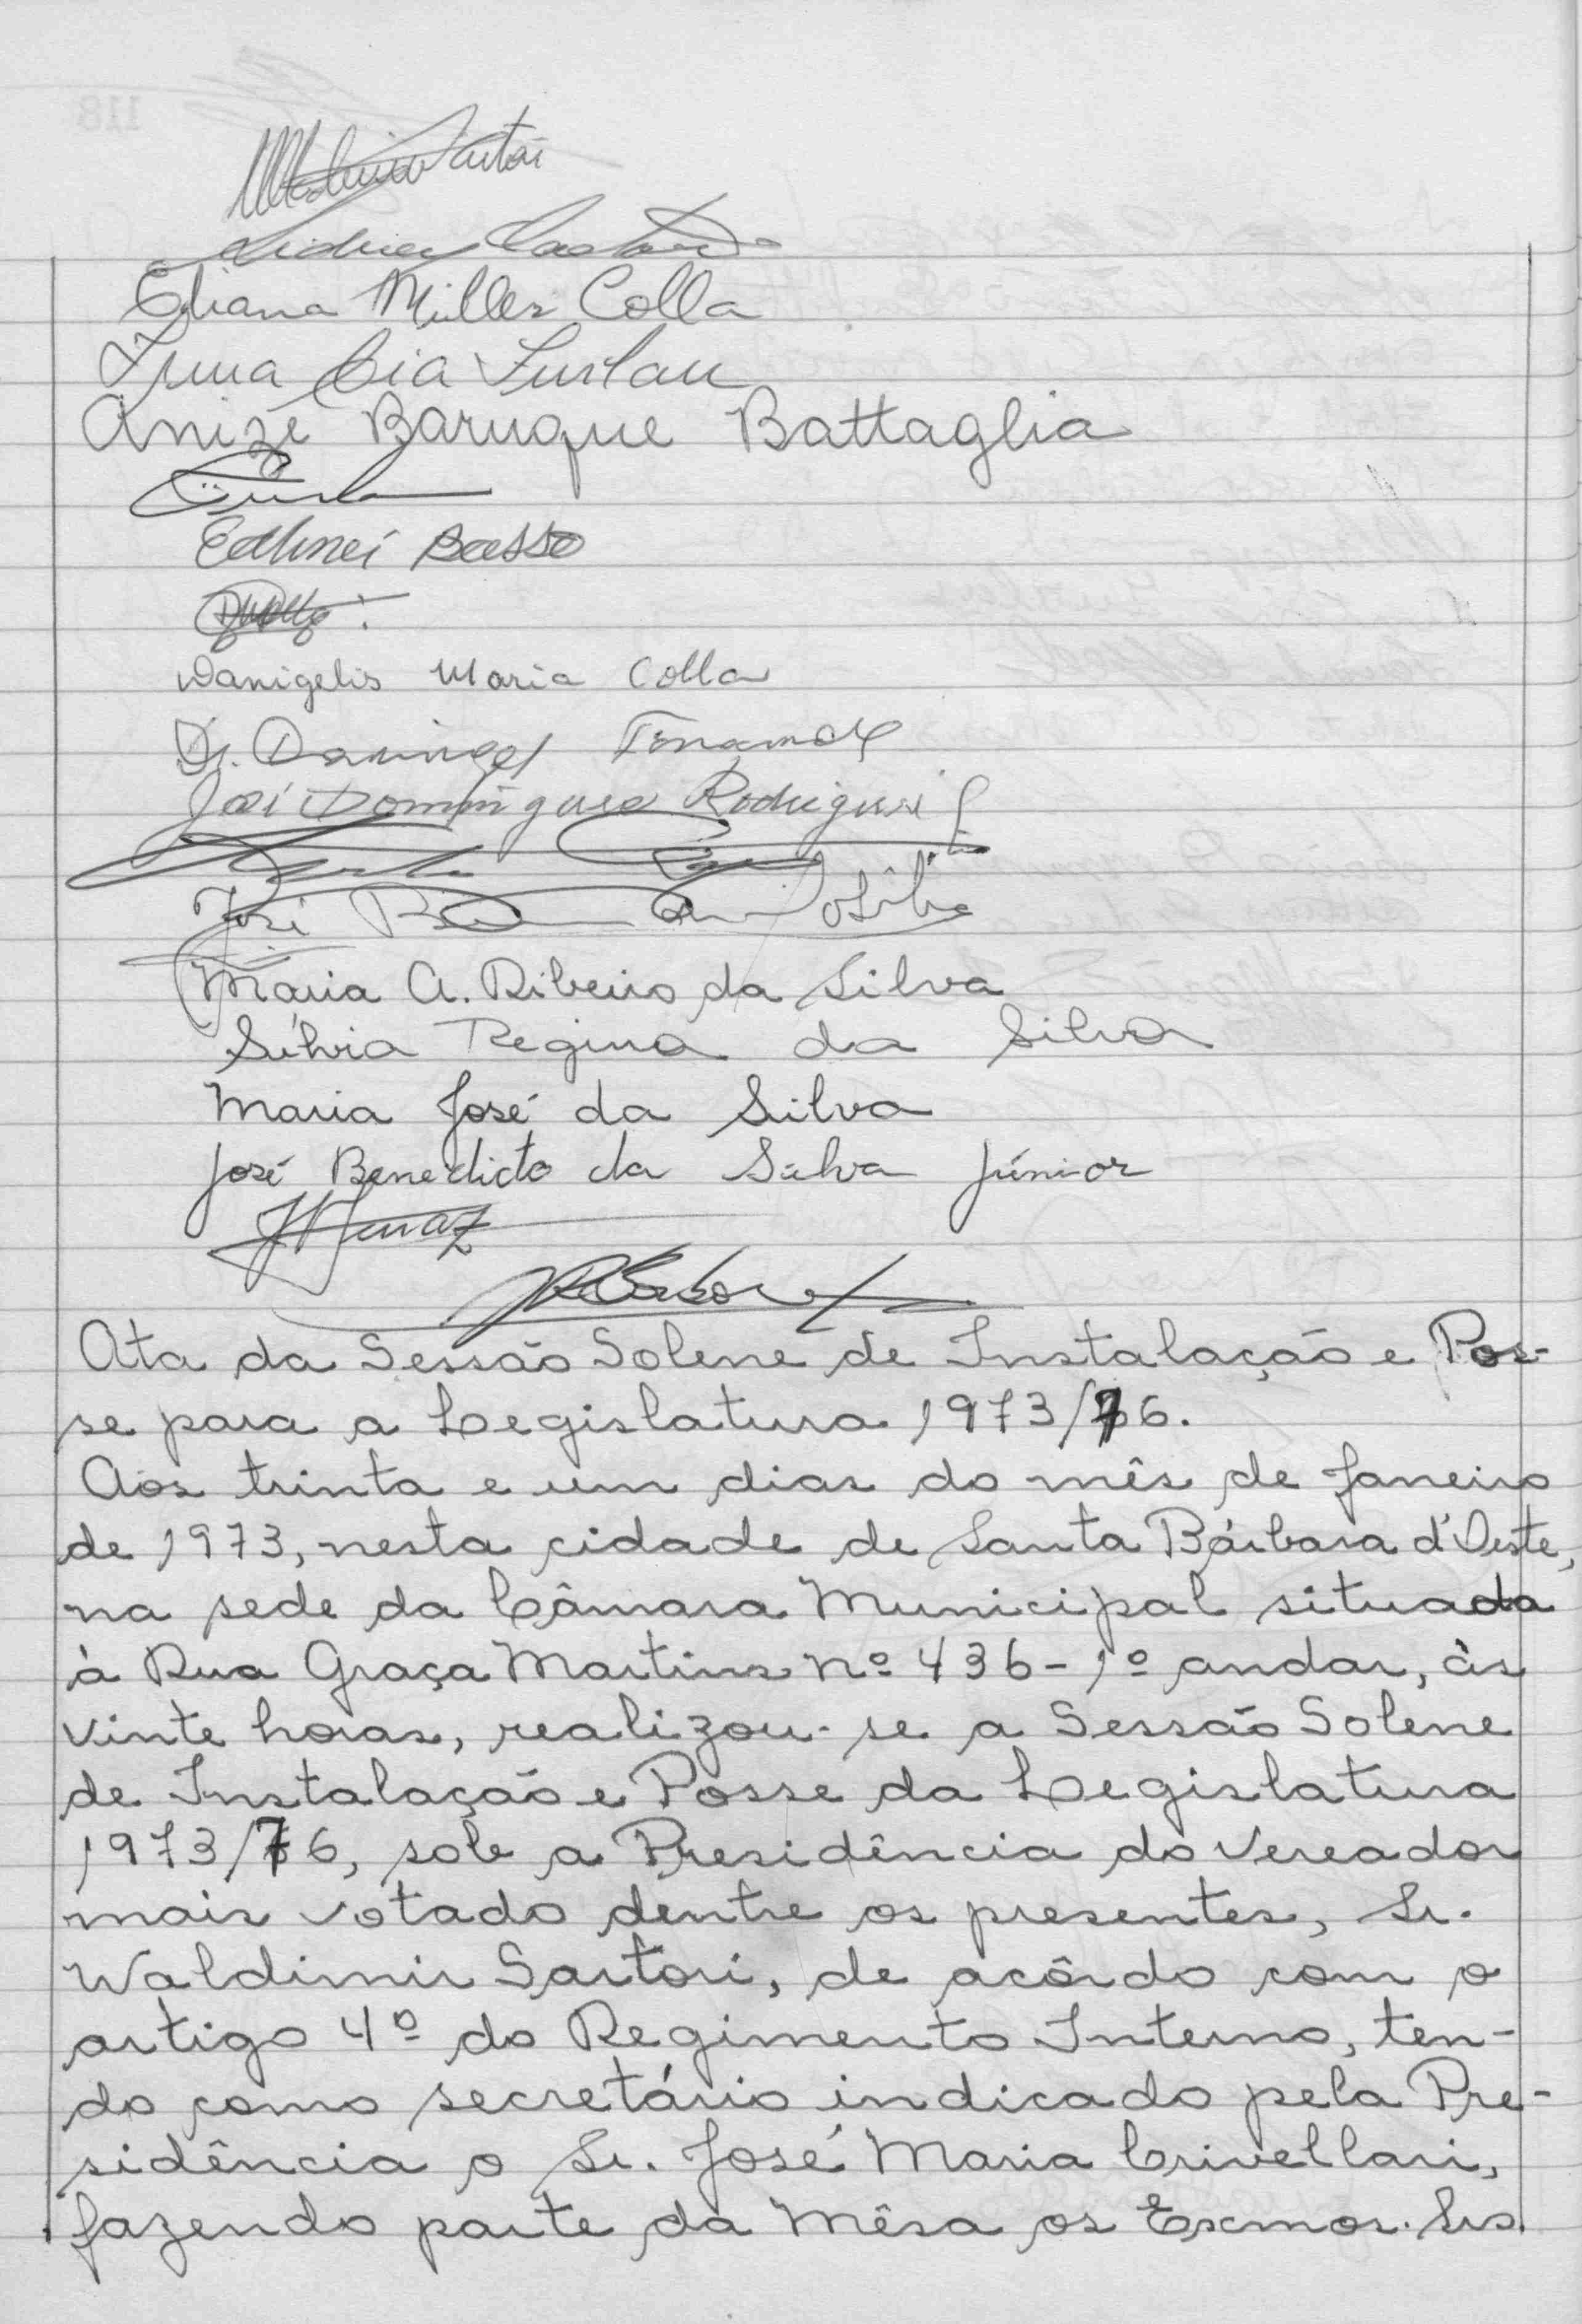 Eliana Miller Colla
Irma Cia Furlan
Anize Baruque Battaglia
Edhnei Basso
Wanigelis Maria Colla
Dr.
José Domingues Rodrigues
José
Maria A. Ribeiro da Silva
Silvia Regina da Silva
Maria José da Silva
José Benedicto da Silva Júnior
Ata da Sessão Solene de Instalação e Pos-
se para a Legislatura 1973/76.
Aos trinta e um dias do mês de Janeiro
de 1973, nesta cidade de Santa Bárbara d'Oeste,
na sede da Câmara Municipal situada
à Rua Graça Martins nº 436 - 1º andar, às
vinte horas, realizou-se a Sessão Solene
de Instalação e Posse da Legislatura
1973/76, sob a Presidência do Vereador
mais votado dentre os presentes, Sr.
Waldimir Sartori, de acôrdo com o
artigo 4º do Regimento Interno, ten-
do como secretário indicado pela Pre-
sidência o Sr. José Maria Crivellari,
fazendo parte da Mêsa os Exmos. Srs.